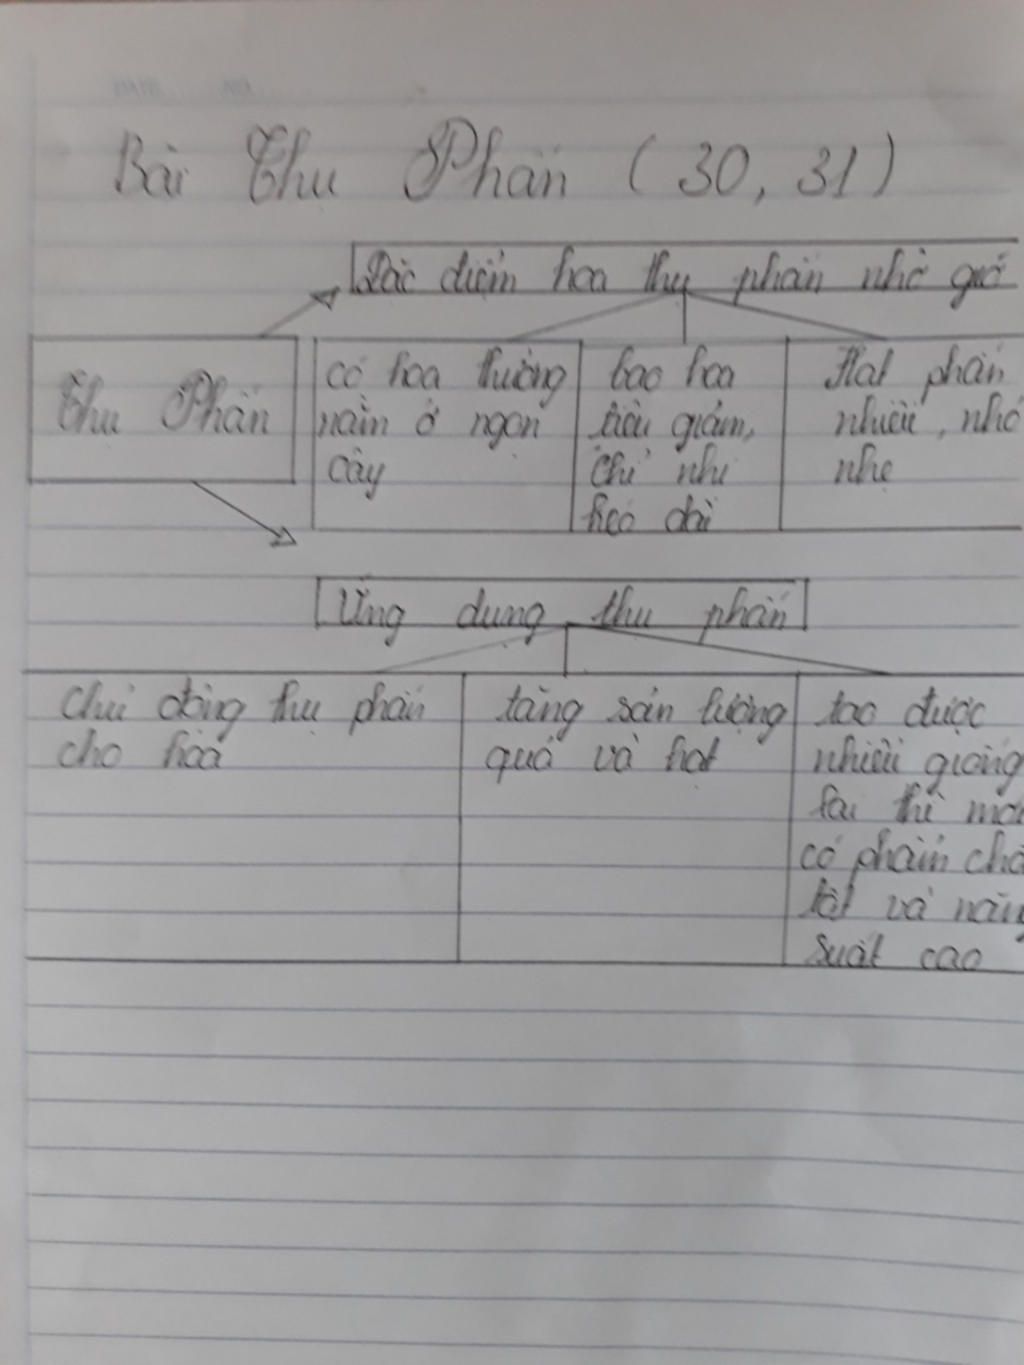 Bài Thụ Phấn (30, 31)
Đặc điểm hoa thụ phấn nhờ gió
Thụ Phấn
có hoa thường
nằm ở ngọn
cây
bao hoa
tiêu giảm,
chỉ nhị
kéo dài
Hạt phấn
nhiều, nhỏ
nhẹ
Ứng dụng thụ phấn
Chủ động thụ phấn
cho hoa
tăng sản lượng
quả và hạt
tạo được
nhiều giống
lai thế mới
có phẩm chấ
tốt và năng
suất cao